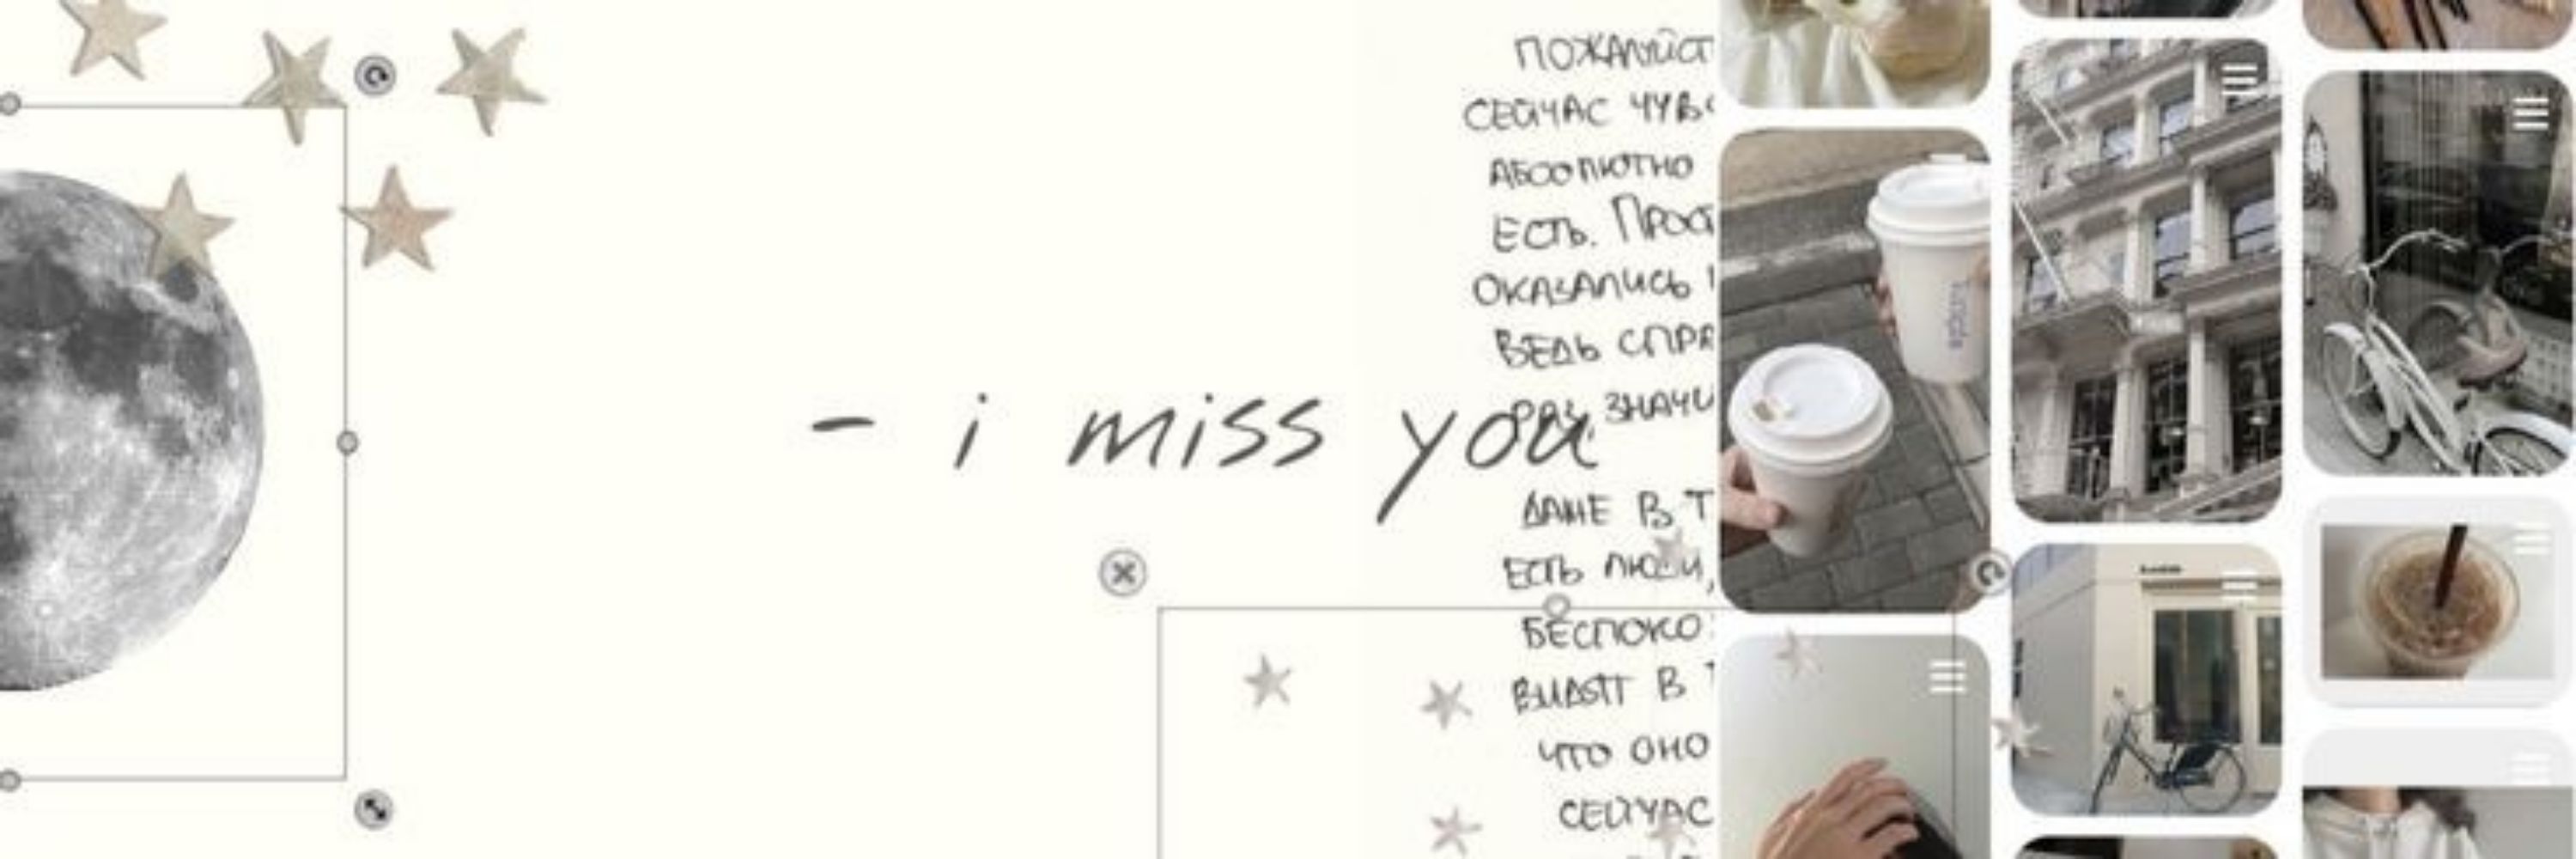 - i miss you
ПОЖАЛУЙСТ
СЕЙЧАС ЧУВС
АБСОЛЮТНО
ЕСТЬ. ПРОСТ
ОКАЗАЛИСЬ
ВЕДЬ СПРА
РАЗ, ЗНАЧИ
ДАЖЕ В Т
ЕСТЬ ЛЮДИ,
БЕСПОКО
ВИДЯТ В Т
ЧТО ОНО
СЕЙЧАС